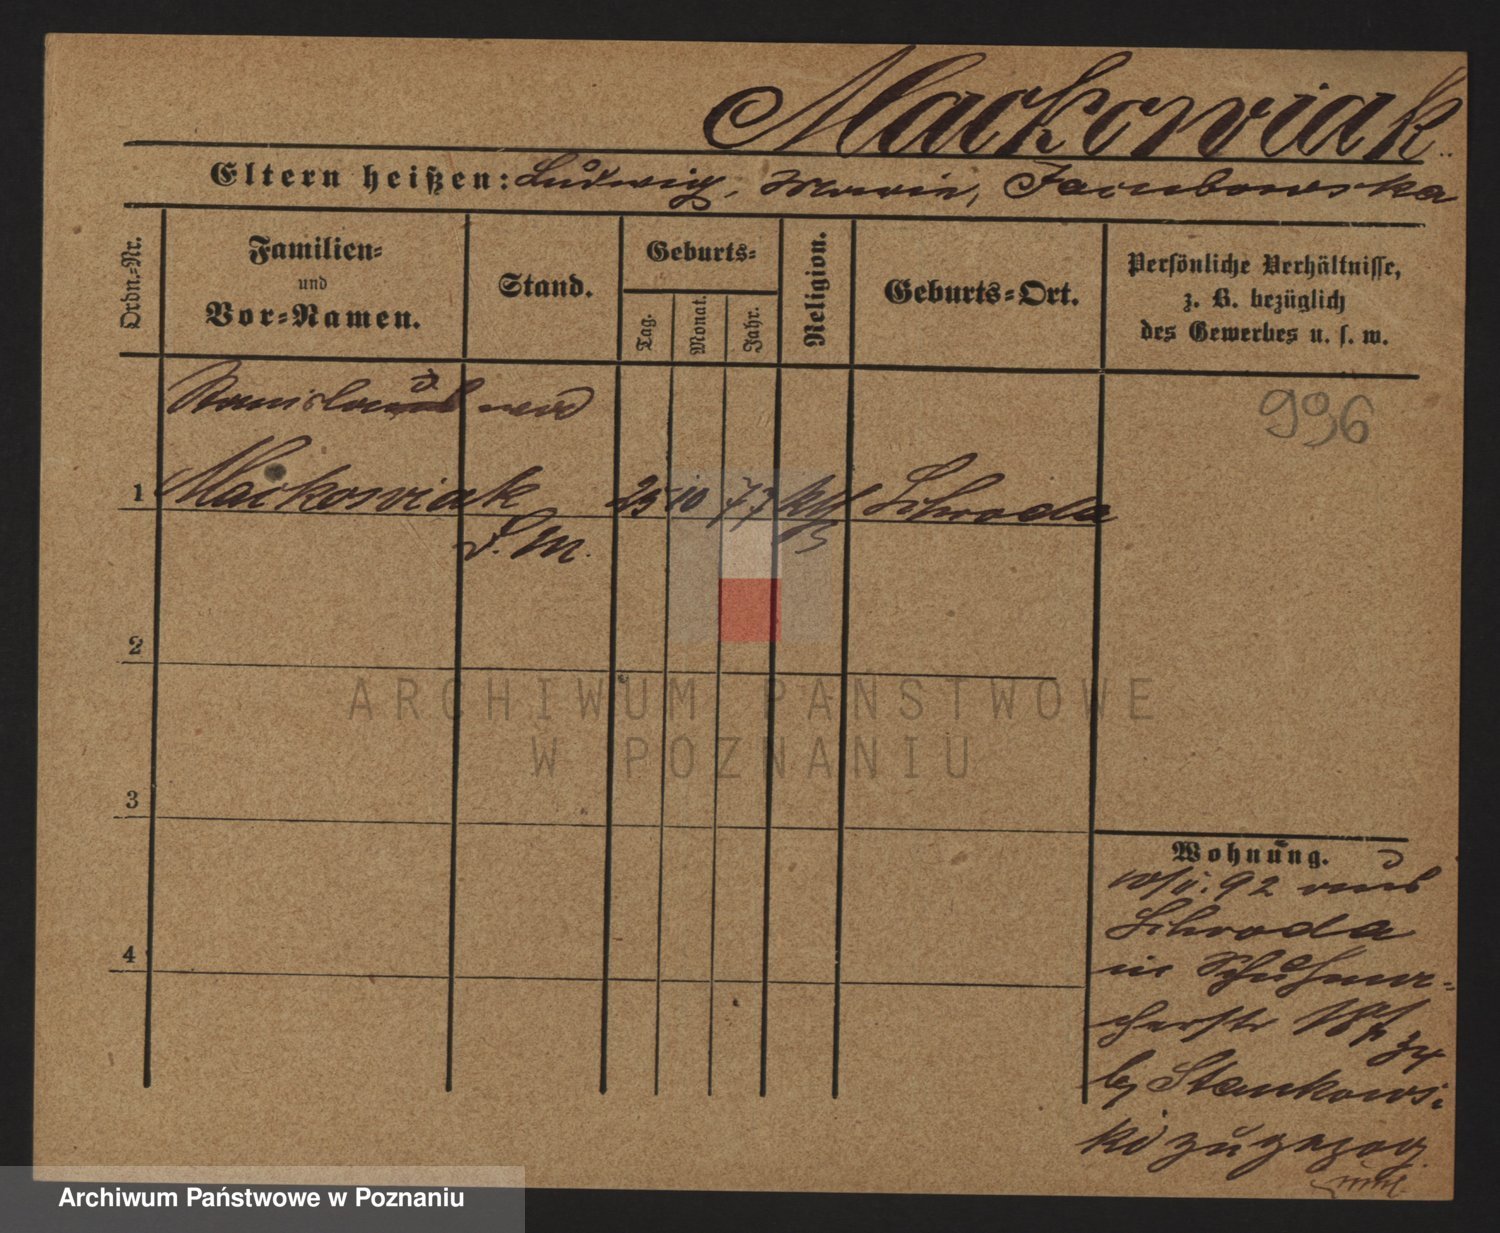 Mackowiak
Eltern heißen: Ludwig, Marie, Jakubowska
Ordn.-Nr.
Familien-
und
Vor-Namen.
Stand.
Geburts-
Tag.
Monat.
Jahr.
Religion.
Geburts-Ort.
Persönliche Verhältnisse,
z. B. bezüglich
des Gewerbes u. s. w.
996
Stanislaus
1 Mackowiak 25 10 77 kth Schroda
S. M.
2
3
4
Wohnung.
92 aus
Schroda
in Schuhma-
cherstr
b/ Stankows-
ki zugezog
ARCHIWUM PAŃSTWOWE
W POZNANIU
Archiwum Państwowe w Poznaniu